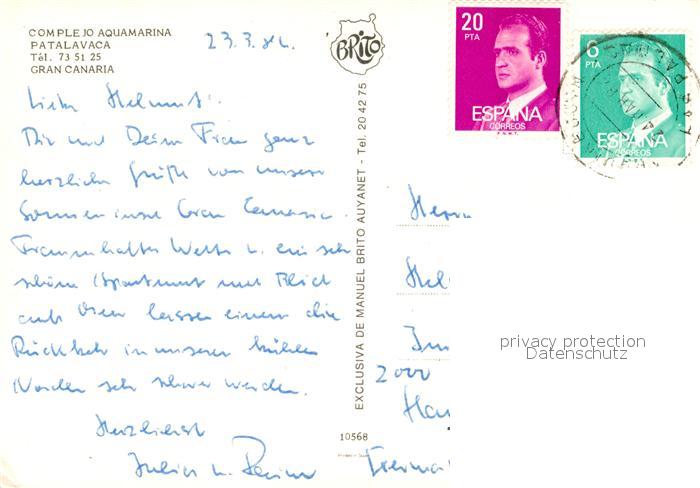 COMPLEJO AQUAMARINA
PATALAVACA
Tél. 73 51 25
GRAN CANARIA
23.3.82.
BRITO
20
PTA
ESPAÑA
CORREOS
F.N.M.T.
6
PTA
ESPAÑA
CORREOS
Lieber Helmut!
Dir und Deiner Frau ganz
herzliche Grüße von unserer
Sonneninsel Gran Canaria.
Traumhaftes Wetter u. ein sehr
schönes Apartment mit Blick
aufs Meer lassen einem die
Rückkehr in unseren kühlen
Norden sehr schwer werden.
Herzlichst
EXCLUSIVA DE MANUEL BRITO AUYANET - Tel. 20 42 75
10568
Herrn
Hel
2000
Ham
privacy protection
Datenschutz